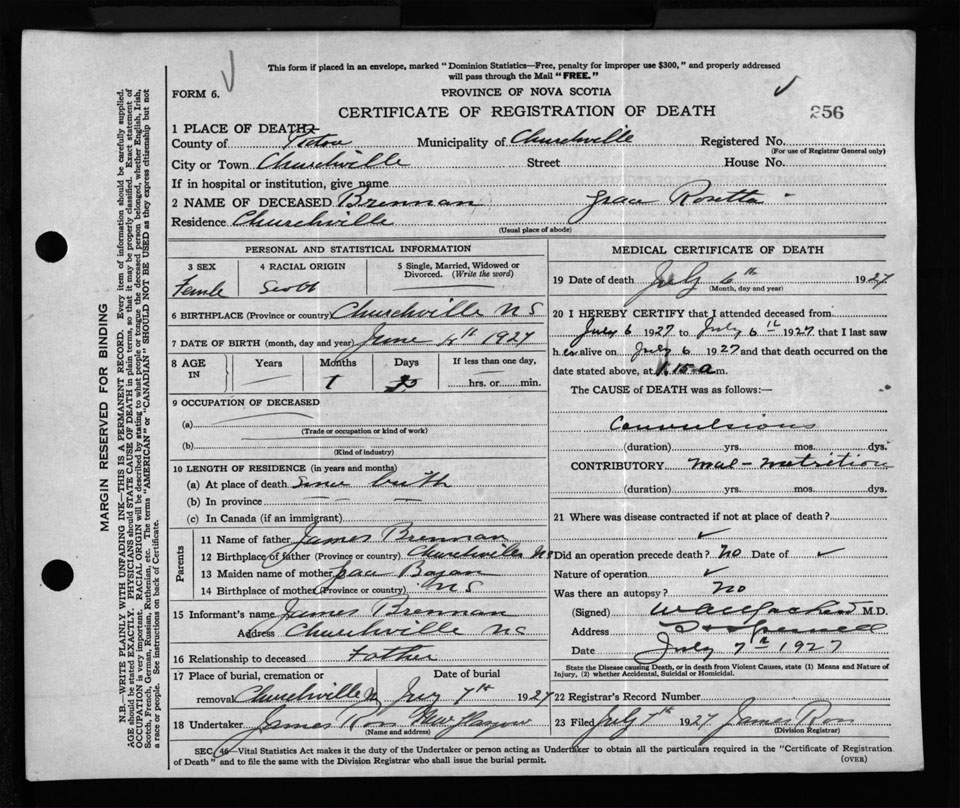 This form if placed in an envelope, marked "Dominion Statistics—Free, penalty for improper use $300," and properly addressed
will pass through the Mail "FREE."
FORM 6.
PROVINCE OF NOVA SCOTIA
CERTIFICATE OF REGISTRATION OF DEATH
256
1 PLACE OF DEATH—
County of Pictou Municipality of Churchville Registered No.
(For use of Registrar General only)
City or Town Churchville Street House No.
If in hospital or institution, give name
2 NAME OF DECEASED Brennan Grace Rosetta
Residence Churchville
(Usual place of abode)
PERSONAL AND STATISTICAL INFORMATION
3 SEX 4 RACIAL ORIGIN 5 Single, Married, Widowed or
Divorced. (Write the word)
Female Scotch
6 BIRTHPLACE (Province or country) Churchville N S
7 DATE OF BIRTH (month, day and year) June 1927
8 AGE Years Months Days If less than one day,
IN 1 hrs. or min.
9 OCCUPATION OF DECEASED
(a)
(Trade or occupation or kind of work)
(b)
(Kind of industry)
10 LENGTH OF RESIDENCE (in years and months)
(a) At place of death since birth
(b) In province
(c) In Canada (if an immigrant)
Parents
11 Name of father James Brennan
12 Birthplace of father (Province or country) Churchville N S
13 Maiden name of mother Grace
14 Birthplace of mother (Province or country) N S
15 Informant's name James Brennan
Address Churchville N S
16 Relationship to deceased Father
17 Place of burial, cremation or Date of burial
removal Churchville July 7th 1927
18 Undertaker James Ross New Glasgow
(Name and address)
MEDICAL CERTIFICATE OF DEATH
19 Date of death July 6th 1927
(Month, day and year)
20 I HEREBY CERTIFY that I attended deceased from
July 6 1927 to July 6th 1927 that I last saw
her alive on July 6 1927 and that death occurred on the
date stated above, at 1.15 a m.
The CAUSE of DEATH was as follows:—
Convulsions
(duration) yrs. mos. dys.
CONTRIBUTORY mal-nutrition
(duration) yrs. mos. dys.
21 Where was disease contracted if not at place of death?
Did an operation precede death? no Date of
Nature of operation
Was there an autopsy? no
(Signed) M.D.
Address
Date July 7th 1927
State the Disease causing Death, or in death from Violent Causes, state (1) Means and Nature of
Injury, (2) whether Accidental, Suicidal or Homicidal.
22 Registrar's Record Number
23 Filed July 7th 1927 James Ross
(Division Registrar)
SEC. 46—Vital Statistics Act makes it the duty of the Undertaker or person acting as Undertaker to obtain all the particulars required in the "Certificate of Registration
of Death" and to file the same with the Division Registrar who shall issue the burial permit.
(OVER)
MARGIN RESERVED FOR BINDING
N.B.—WRITE PLAINLY WITH UNFADING INK—THIS IS A PERMANENT RECORD. Every item of information should be carefully supplied.
AGE should be stated EXACTLY. PHYSICIANS should STATE CAUSE OF DEATH in plain terms, so that it may be properly classified. Exact statement of
OCCUPATION is very important. RACIAL ORIGIN will be described by stating to what people or tongue the deceased person belonged, whether English, Irish,
Scotch, French, German, Russian, Ruthenian, etc. The terms "AMERICAN" or "CANADIAN" SHOULD NOT BE USED as they express citizenship but not
a race or people. See instructions on back of Certificate.